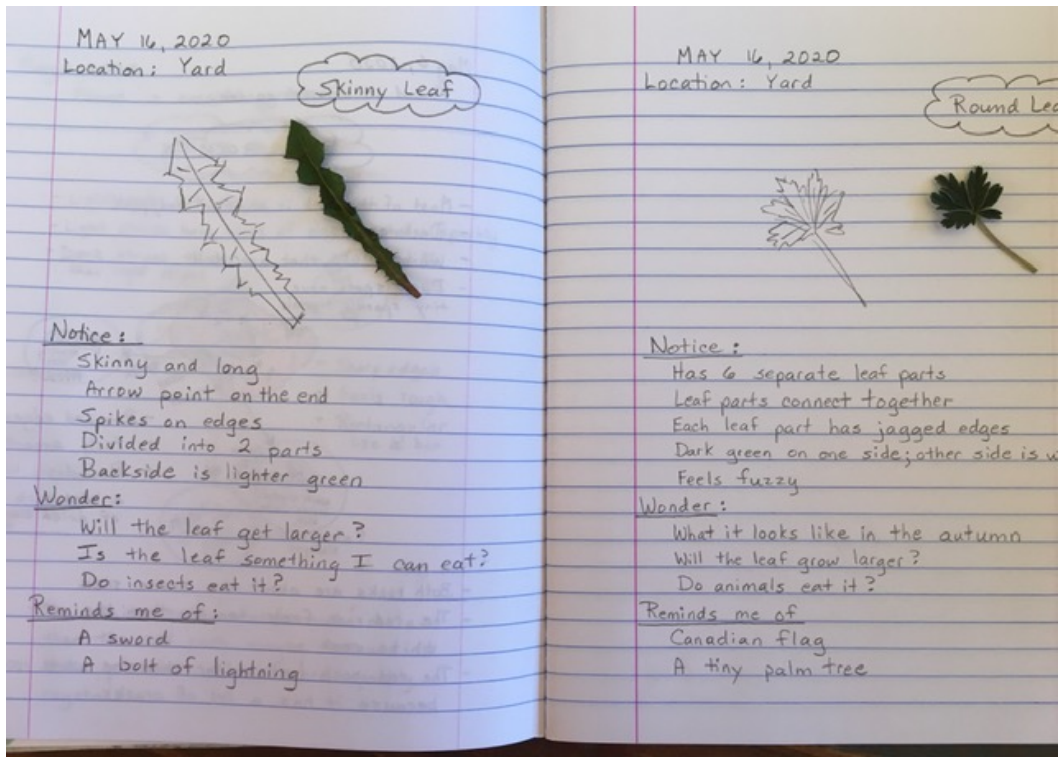 MAY 16, 2020
Location: Yard
Skinny Leaf
Notice:
Skinny and long
Arrow point on the end
Spikes on edges
Divided into 2 parts
Backside is lighter green
Wonder:
Will the leaf get larger?
Is the leaf something I can eat?
Do insects eat it?
Reminds me of:
A sword
A bolt of lightning
MAY 16, 2020
Location: Yard
Round
Notice:
Has 6 separate leaf parts
Leaf parts connect together
Each leaf part has jagged edges
Dark green on one side; other side is
Feels fuzzy
Wonder:
What it looks like in the autumn
Will the leaf grow larger?
Do animals eat it?
Reminds me of
Canadian flag
A tiny palm tree